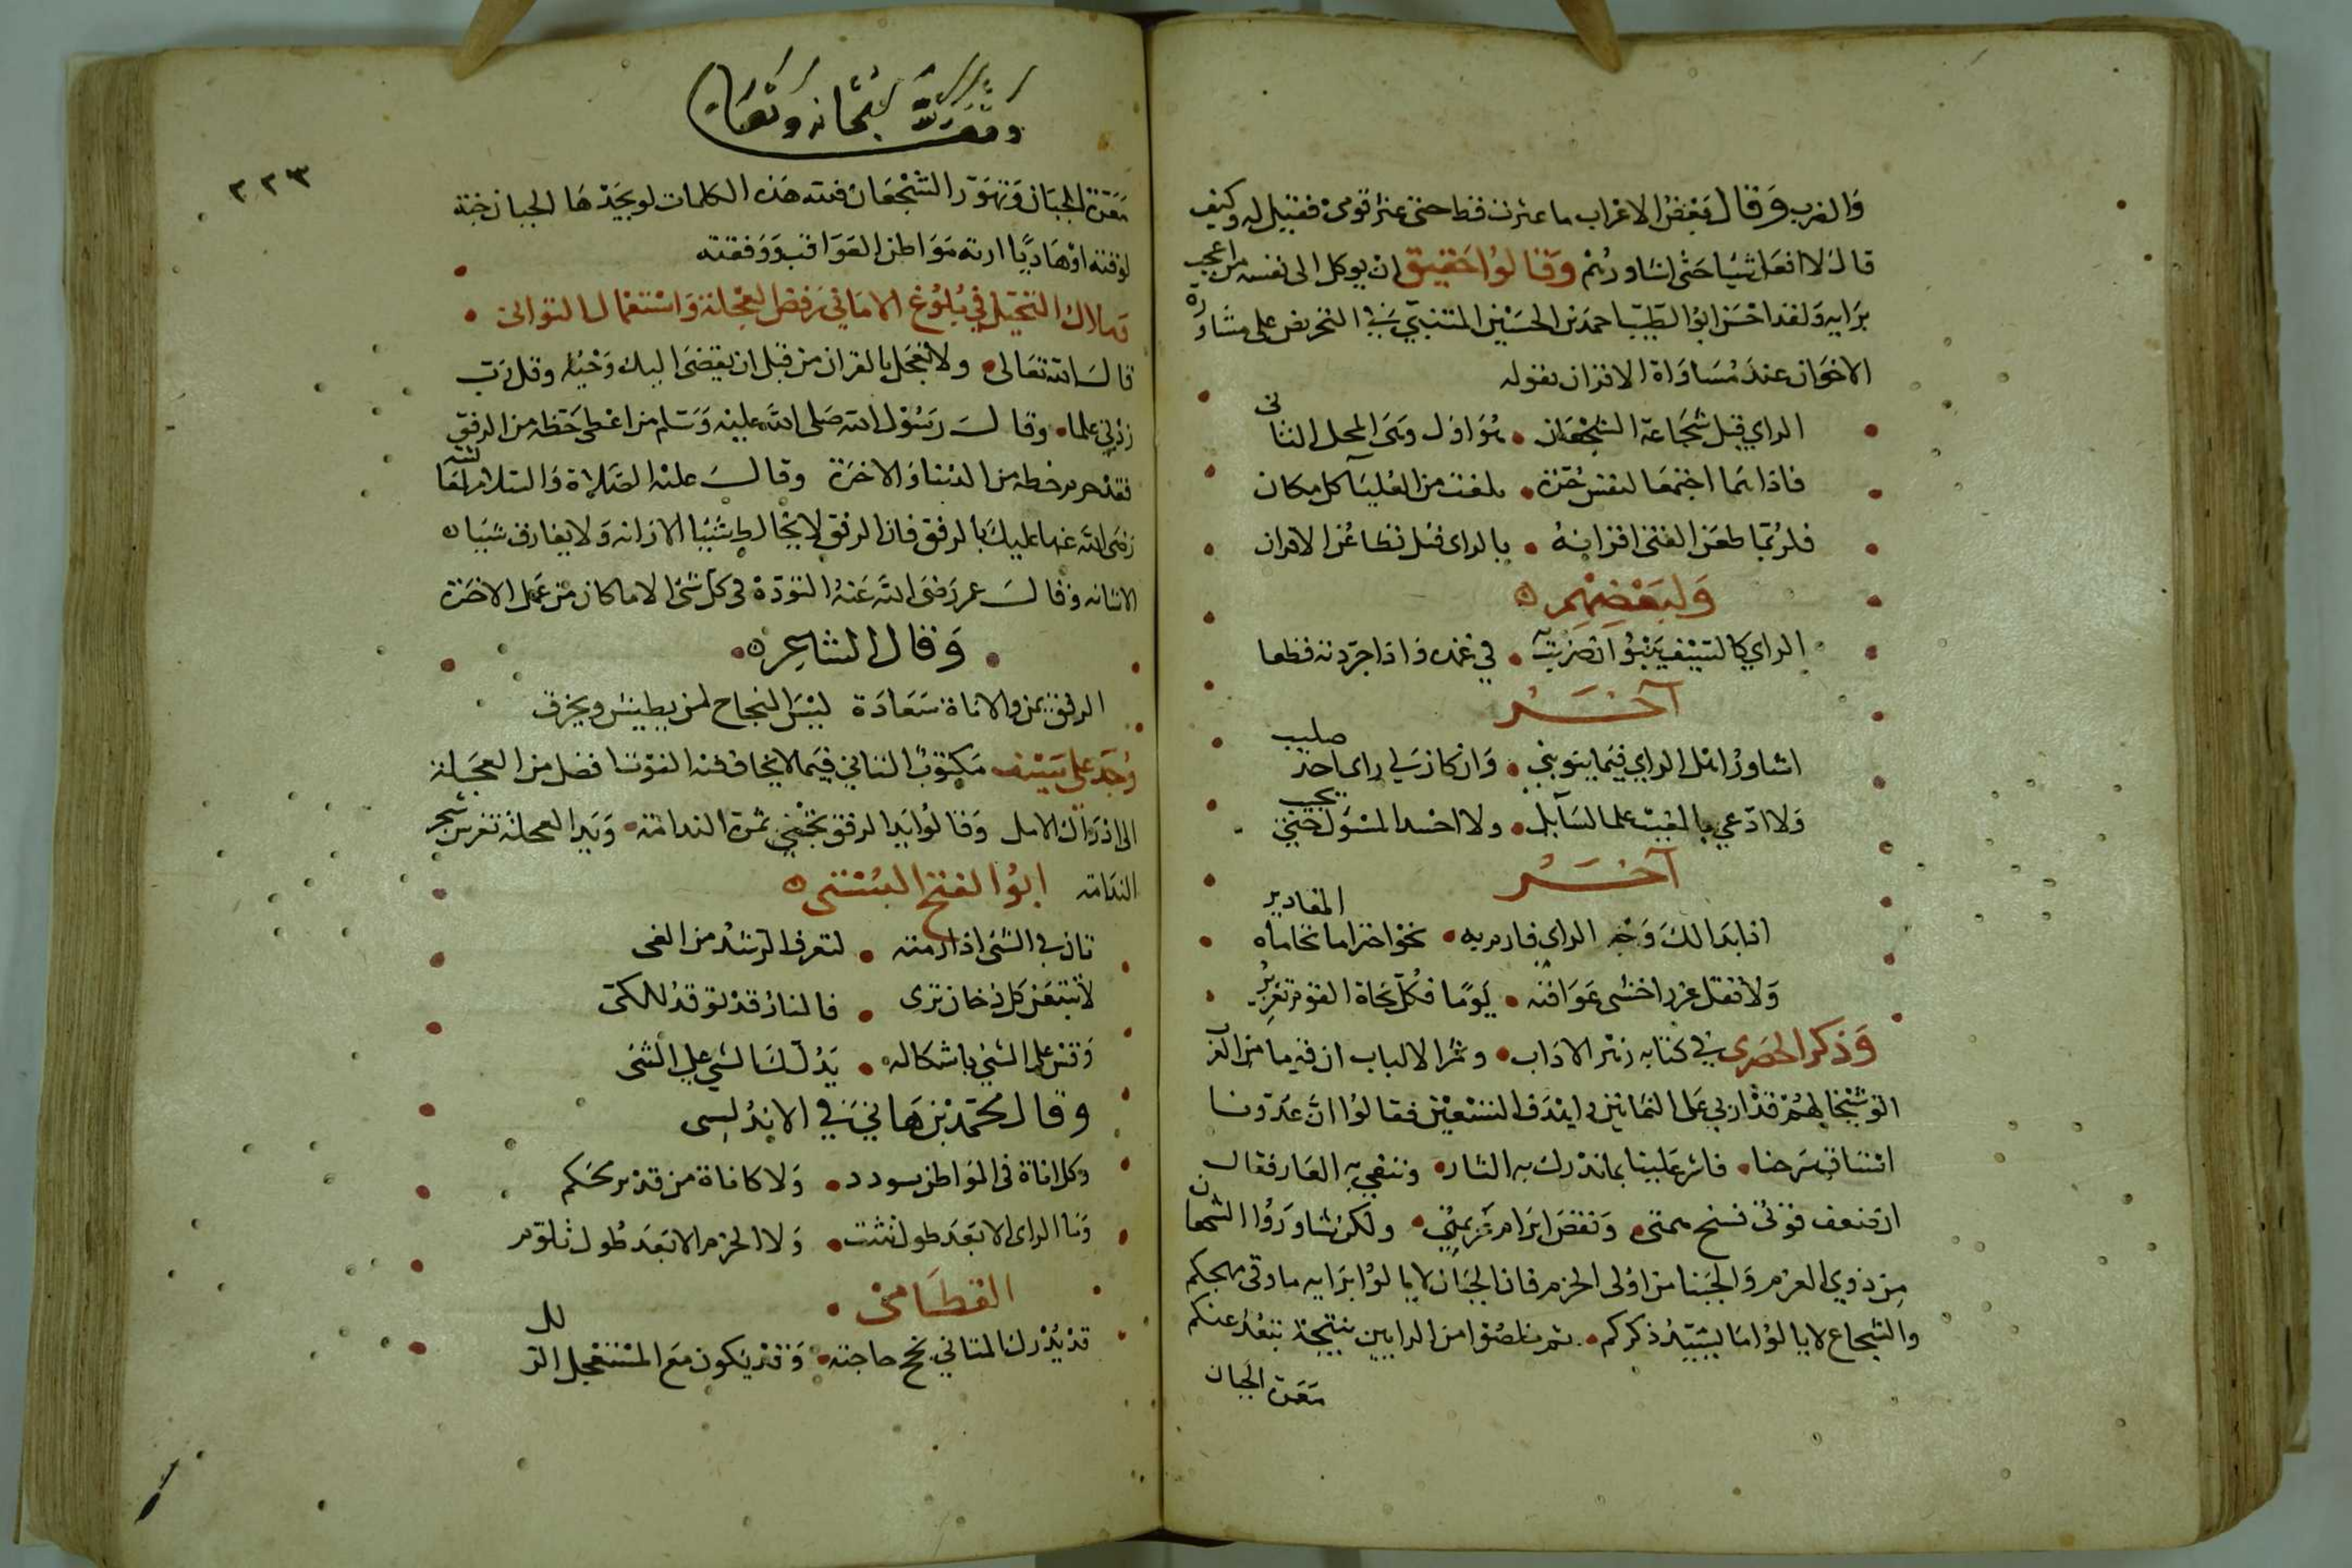 والغرب وقال بعض الاعراب ما عثرت قط حتى عثر قومى فقيل له وكيف
قال لا افعل شيا حتى اشاورهم وقالوا حقيق ان يوكل الى نفسه من اعجب
برايه ولقد احسن ابو الطيب احمد بن الحسين المتنبي في التحريض على مشاورة
الاخوان عند مساواة الاقران بقوله
الراي قبل شجاعة الشجعان • هو اول وهى المحل الثانى
فاذا هما اجتمعا لنفس حرة • بلغت من العلياء كل مكان
فلربما طعن الفتى اقرانه • بالراى قبل تطاعن الاقران
ولبعضهم
الراي كالسيف ينبو ان ضربت به • في غمده واذا جردته قطعا
آخر
اشاور اهل الراي فيما ينوبني • وان كان لي راى احذ صليب
ولا ادعي بالغيب علما لسائل • ولا احسد المسؤل حين يجيب
آخر
اذا بدا لك وجه الراى فارم به • نحو اختراما تحاماه المقادير
ولا تقل عزه اخشى عواقبه • يوما فكل نجاة القوم تغرير
وذكر الحصرى في كتابه زهر الاداب • وثمر الالباب ان قوما من العرب
اتو شيخا لهم قد اربى على الثمانين واهدف للتسعين فقالوا ان عدونا
استاق سرحنا • فاشر علينا بما ندرك به الثار • وننفي به العار فقال
ان ضعف قوتى فسخ همتى • ونقض ابرام عزيمتي • ولكن شاوروا الشجعان
من ذوي العزم والجبنا من اولى الحزم فان الجبان لا يالوا برايه ما وقى مهجكم
والشجاع لا يالوا ما يشيد ذكركم • ثم خلصوا من الرايين بنتيجة تبعد عنكم
معرة الجبان
وقف لله سبحانه وتعالى
٢٢٣
معرة الجبان وتهور الشجعان فتلك هذه الكلمات لو يجدها الجبان جنة
لوقته او هاديا ارته مواطن العواقب ووقفته
ملاك التخيل في بلوغ الامانى رفض العجلة واستعمال التوانى •
قال الله تعالى • ولا تعجل بالقران من قبل ان يقضى اليك وحيه وقل رب
زدني علما • وقال رسول الله صلى الله عليه وسلم من اعطى حظه من الرفق
فقد حرم حظه من الدنيا والاخرة وقال عليه الصلاة والسلام لعائشة
رضى الله عنها عليك بالرفق فان الرفق لا يخالط شيئا الا زانه ولا يفارق شيئا
الا شانه وقال عمر رضى الله عنه التؤدة فى كل شئ الا ما كان من عمل الاخرة
• وقال الشاعر •
الرفق يمن والاناة سعادة ليس النجاح لمن يطيش ويخرق
وجد على سيف مكتوب التاني فيما لا يخاف فيه الفوت افضل من العجلة
الى ادراك الامل وقالوا يد الرفق تجني ثمرة السلامة • ويد العجلة تغرس شجر
الندامة ابو الفتح البستى
تان في الشئ اذا رمته • لتعرف الرشد من الغى
لا تتبعن كل دخان ترى • فالنار قد توقد للكى
وقس على الشئ باشكاله • يدلك الشئ على الشئ
وقال محمد بن هاني في الاندلسى
وكل اناة فى المواطن سودد • ولا كاناة من قدير محكم
وما الراى الا بعد طول تثبت • ولا الحزم الا بعد طول تلوم
القطامى •
قد يدرك المتاني نجح حاجته • وقد يكون مع المستعجل الزلل